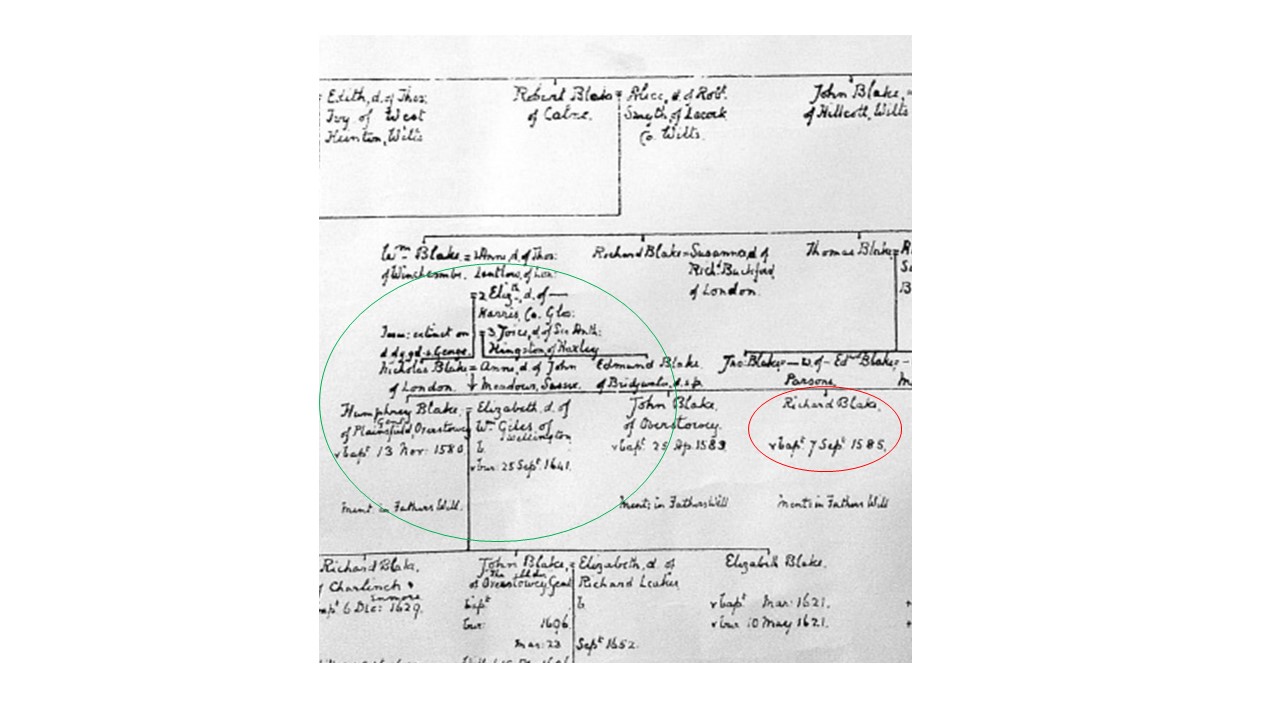 = Edith, d. of Thos:
Ivy of West
Kenton, Wilts
Robert Blake =
of Calne.
Alice, d. of Robt.
Smyth, of Lacock
Co. Wilts.
John Blake, =
of Hillcott, Wilts
Wm Blake =
of Winchcombe.
Anne, d. of Thos:
of Lon:
= 2 Elizth, d. of —
Harris, Co. Glo:
3 Joice, d. of Sir Anth:
Kingston, of
extinct on
George.
Richard Blake =
Susanna, d. of
Richd. Buckford,
of London.
Thomas Blake =
Nicholas Blake =
of London.
Anne, d. of John
Meadows, Sussex.
Edmund Blake.
of Bridgwater, d.s.p.
Tho: Blake — w. of — Edwd Blake —
Parsons
Humphrey Blake, =
Gent
of Plainsfield, Overstowey
v bapt 13 Nov: 1580
ment. in Fathers Will.
Elizabeth, d. of
Wm Giles, of
Wellington
b.
v bur: 25 Sept. 1641.
John Blake,
of Overstowey.
v bapt. 25 Ap. 1583
ment: in Fathers Will
Richard Blake,
v bapt. 7 Sept 1585,
ment: in Fathers Will
Richard Blake,
f Charlinch
Enmore
apt 6 Dec: 1629.
John Blake, =
The
of Overstowey Gent
bapt
bur: 1696.
mar: 23
Elizabeth, d. of
Richard Leaker
b.
Sept 1652.
Elizabeth Blake.
v bapt Mar: 1621.
v bur 10 May 1621.